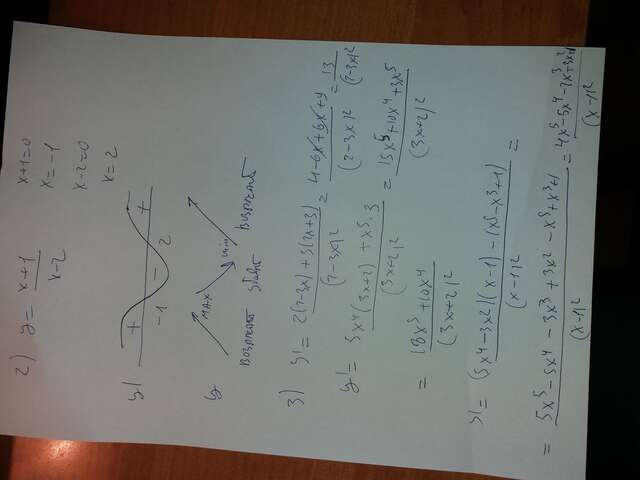 2) y = (x+1)/(x-2)
x+1=0
x=-1
x-2=0
x=2
y' + -1 - 2 +
y max min
возрастает убывает возрастает
3) y' = (2(2-3x)+3(2x+3))/(2-3x)² = (4-6x+6x+9)/(2-3x)² = 13/(2-3x)²
y' = (5x⁴(3x+2)+x⁵·3)/(3x+2)² = (15x⁵+10x⁴+3x⁵)/(3x+2)²
= (18x⁵+10x⁴)/(3x+2)²
y' = (5x⁴-3x²)(x-1)-(x⁵-x³+1)/(x-1)² =
= (5x⁵-5x⁴-3x³+3x²-x⁵+x³+1)/(x-1)² = (4x⁵-5x⁴-2x³+3x²+1)/(x-1)²